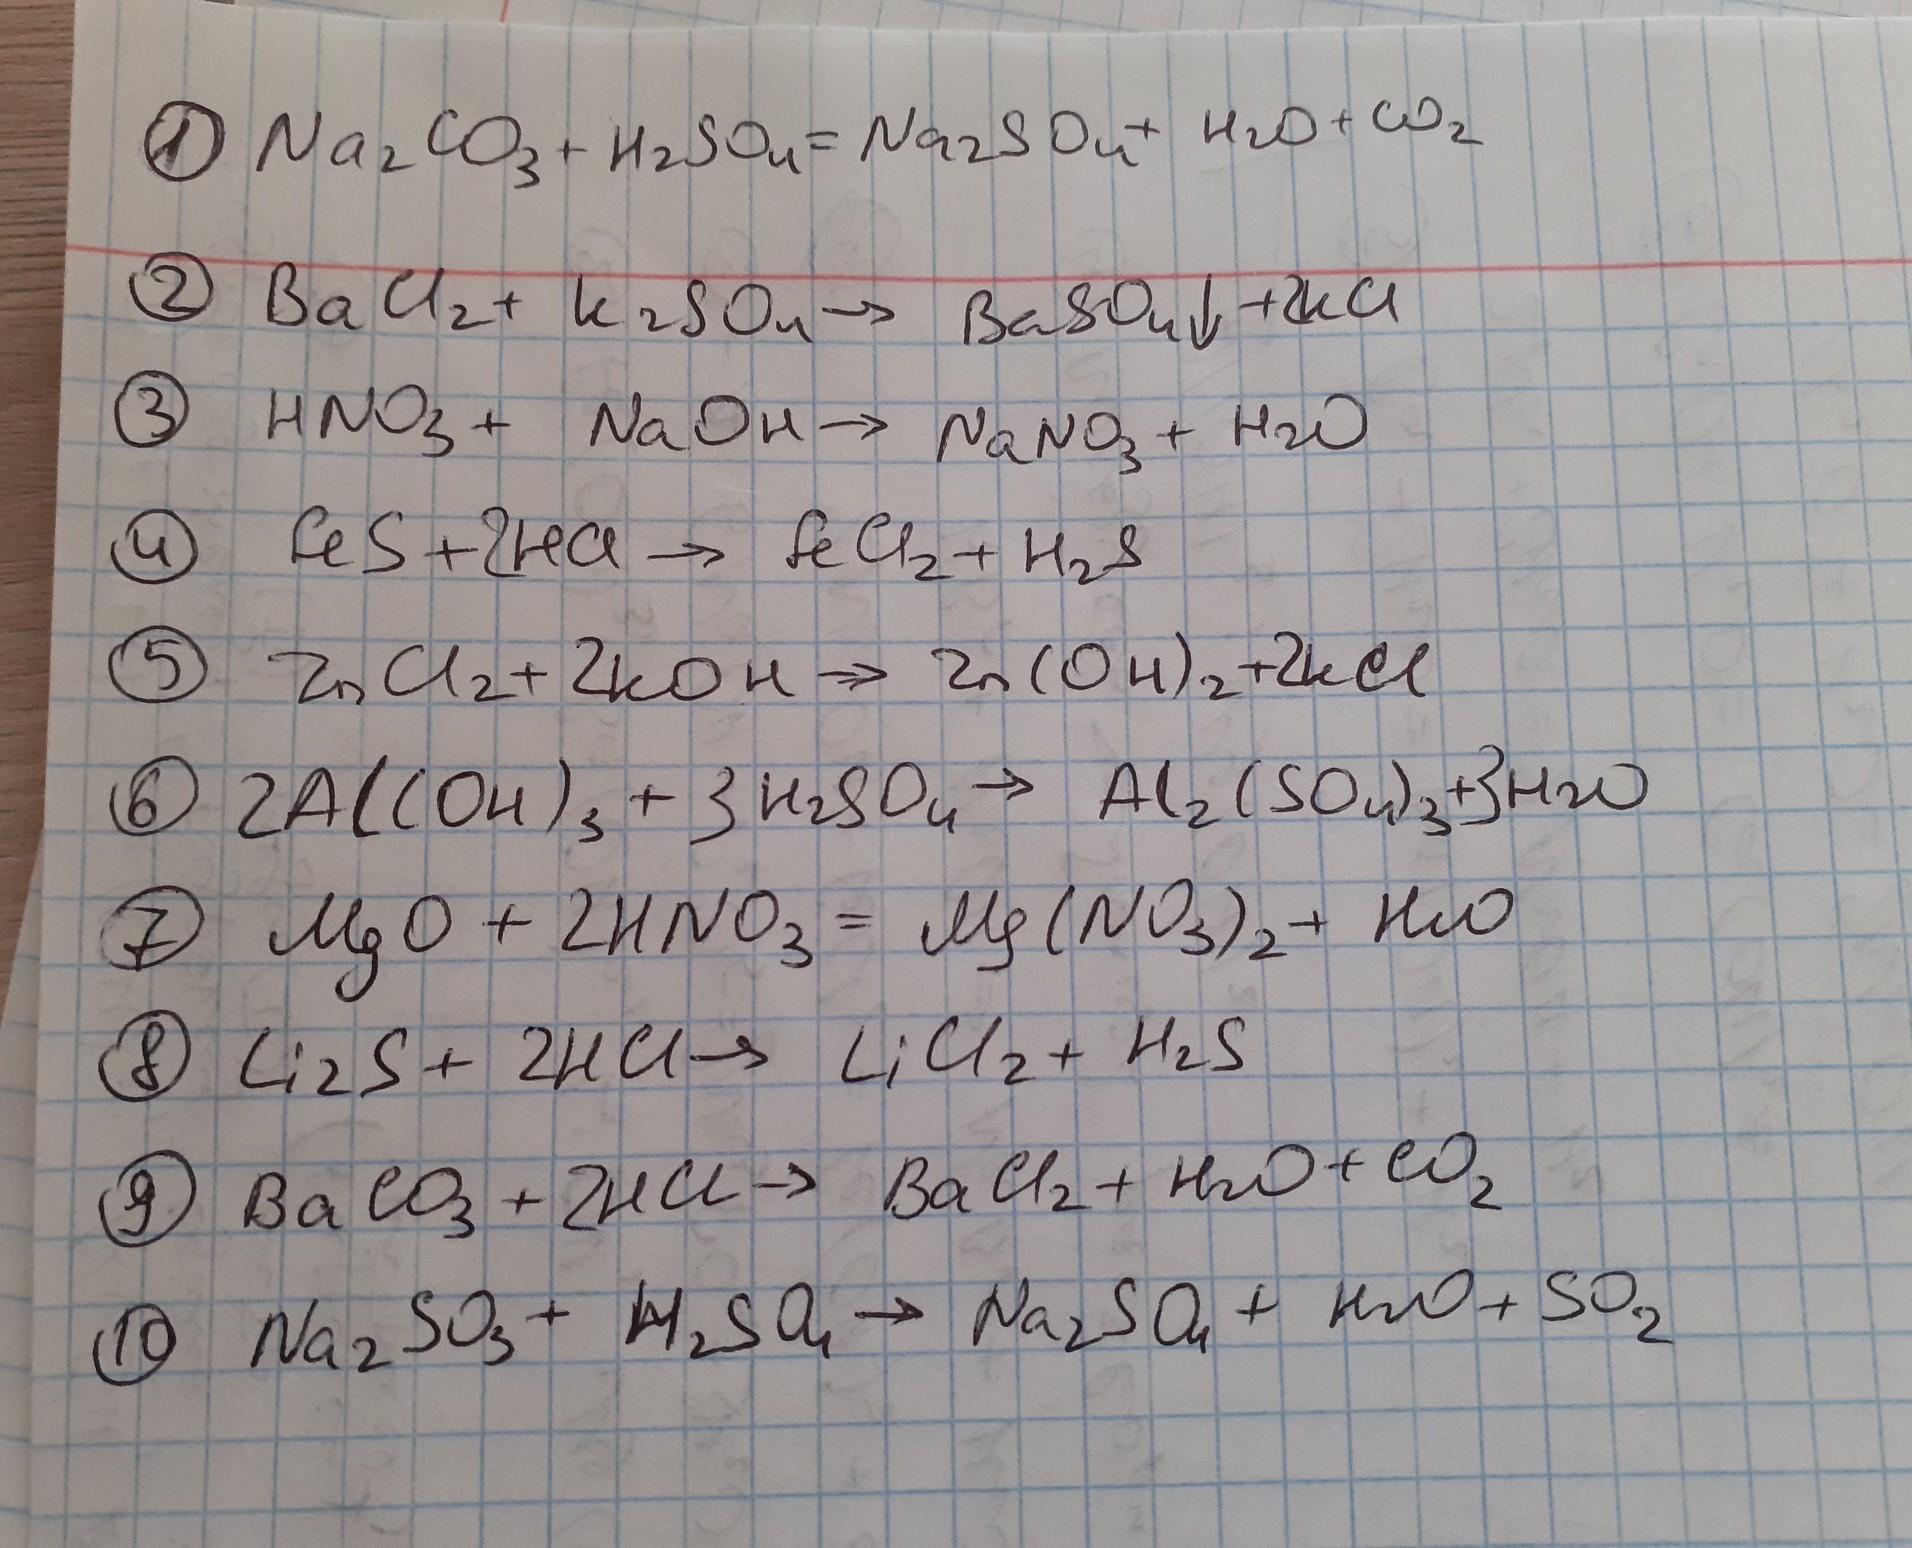 ① Na₂CO₃ + H₂SO₄ = Na₂SO₄ + H₂O + CO₂
② BaCl₂ + K₂SO₄ → BaSO₄↓ + 2KCl
③ HNO₃ + NaOH → NaNO₃ + H₂O
④ FeS + 2HCl → FeCl₂ + H₂S
⑤ ZnCl₂ + 2KOH → Zn(OH)₂ + 2KCl
⑥ 2Al(OH)₃ + 3H₂SO₄ → Al₂(SO₄)₃ + 3H₂O
⑦ MgO + 2HNO₃ = Mg(NO₃)₂ + H₂O
⑧ Li₂S + 2HCl → LiCl₂ + H₂S
⑨ BaCO₃ + 2HCl → BaCl₂ + H₂O + CO₂
⑩ Na₂SO₃ + H₂SO₄ → Na₂SO₄ + H₂O + SO₂